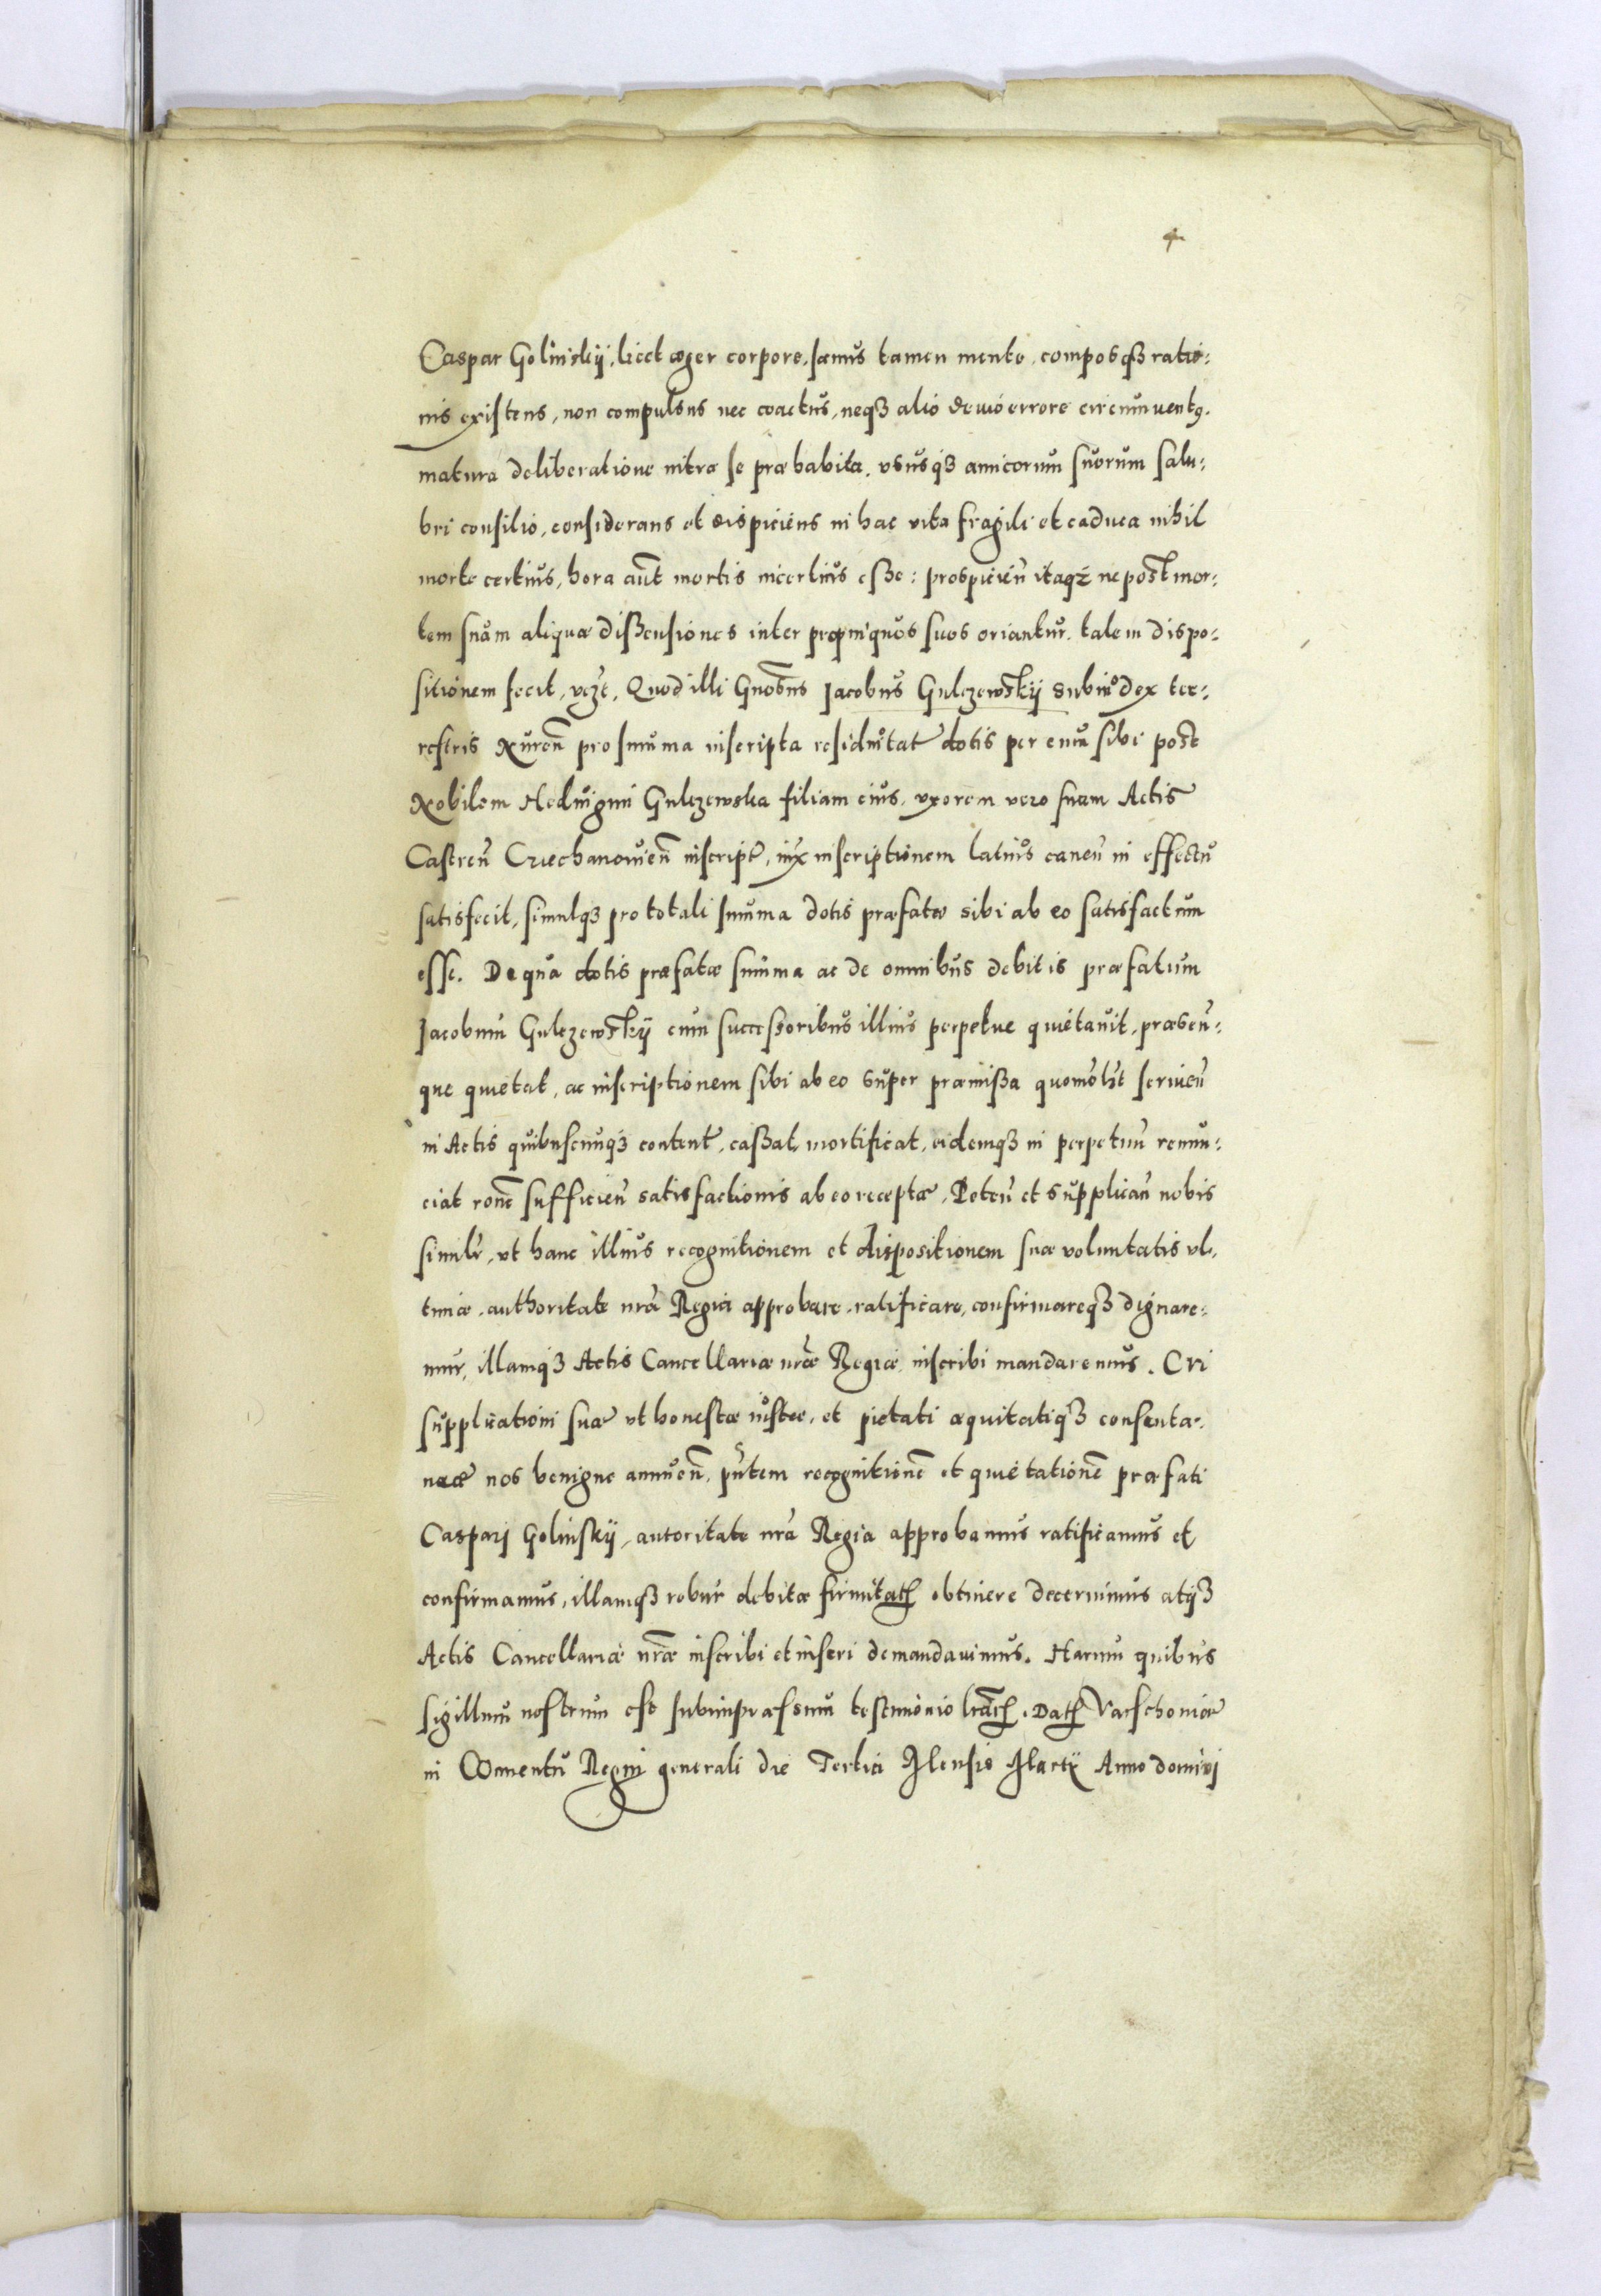 4
Caspar Golinskij, licet æger corpore, sanus tamen mente, composq3 ratio:
nis existens, non compulsus nec coactus, neq3 alio deuio errore circumuent9.
matura deliberatione intra se præhabita, vsusq3 amicorum suorum salu:
bri consilio, considerans et dispiciens in hac vita fragili et caduca nihil
morte certius, hora aũt mortis incertius esse: prospicieñ itaq3 ne post mor:
tem suam aliquæ dissensiones inter propinquos suos oriantur. talem dispo:
sitionem fecit, vezt, Quod illi Gnosus Jacobus Gulczewskij subiudex ter:
restris Nureñ pro summa inscripta residuitat dotis per eum sibi post
Nobilem Heduigim Gulczewska filiam eius, vxorem vero suam Actis
Castreñ Cziechanouieñ inscript, iux inscriptionem latius caneñ in effectu
satisfecit, simulq3 pro totali summa dotis præfatæ sibi ab eo satisfactum
esse. De qua dotis præfatæ summa ac de omnibus debitis præfatum
Jacobum Gulczewskij cum successoribus illius perpetue quietauit, præseñ:
que quietat, ac inscriptionem sibi ab eo super præmissa quomolt seruieñ
in Actis quibuscunq3 content, cassat, mortificat, eidemq3 in perpetuũ renun:
ciat roñe sufficieñ satisfactionis ab eo receptæ. Peteñ et supplicañ nobis
similr, vt hanc illius recognitionem et dispositionem suæ voluntatis vl,
timæ, authoritate nrã Regia approbare, ratificare, confirmareq3 dignare:
mur, illamq3 Actis Cancellariæ nrãe Regiæ inscribi mandaremus. Cui
supplicationi suæ vt honestæ iustæ, et pietati æquitatiq3 consenta:
neæ nos benigne annueñ, pñtem recognitionẽ et quietationẽ præfati
Casparj Golinskij, autoritate nrã Regia approbamus ratificamus et
confirmamus, illamq3 robur debitæ firmitat obtinere decernimus atq3
Actis Cancellariæ nrãe inscribi et inseri demandauimus. Harum quibus
sigillum nostrum est subimpræssum testimonio lrar. Dat Varschouiæ
in Conuentu Regni generali die Tertia Mensis Martij Anno dominj